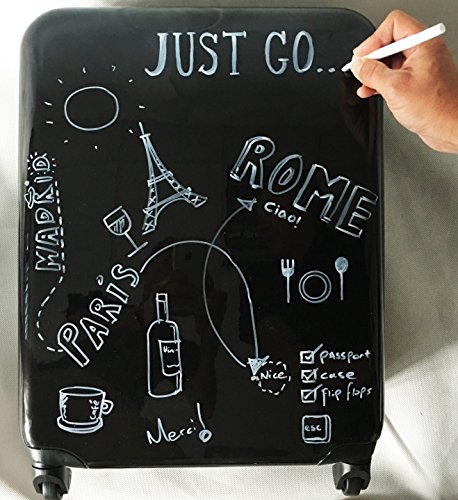 JUST GO...
ROME
Ciao!
MADRID
PARIS
Vin
Nice,
passport
case
flip flops
Café
Merci!
esc